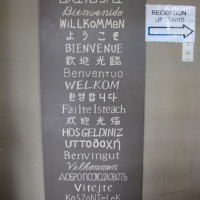 Bienvenido
WILLKOMMEN
ようこそ
BIENVENUE
歡迎光臨
Benventuo
WELKOM
환영합니다
Fáilte Isteach
欢迎光临
HOS GELDINIZ
Benvingut
Velkommen
ДОБРО ПОЖАЛОВАТЬ
Vitejte
KöSZöNTeLeK
RECEPTION
UPSTAIRS